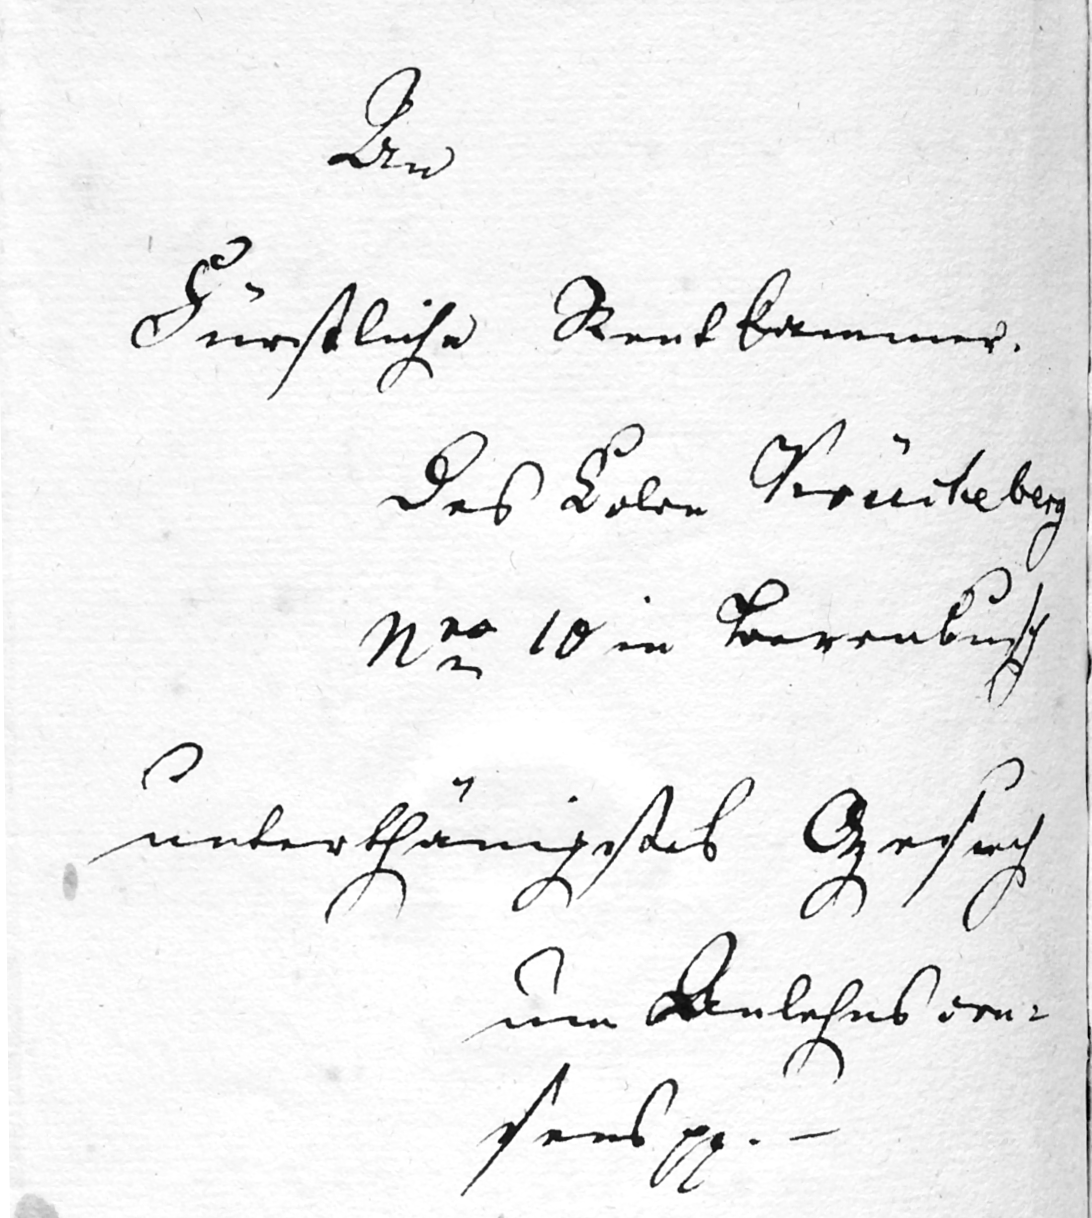 An
Fürstliche Rentkammer.
Des Colon Krückeberg
Nro 10 in Beerenbusch
unterthänigstes Gesuch
um Anlehns con=
sens pp. —